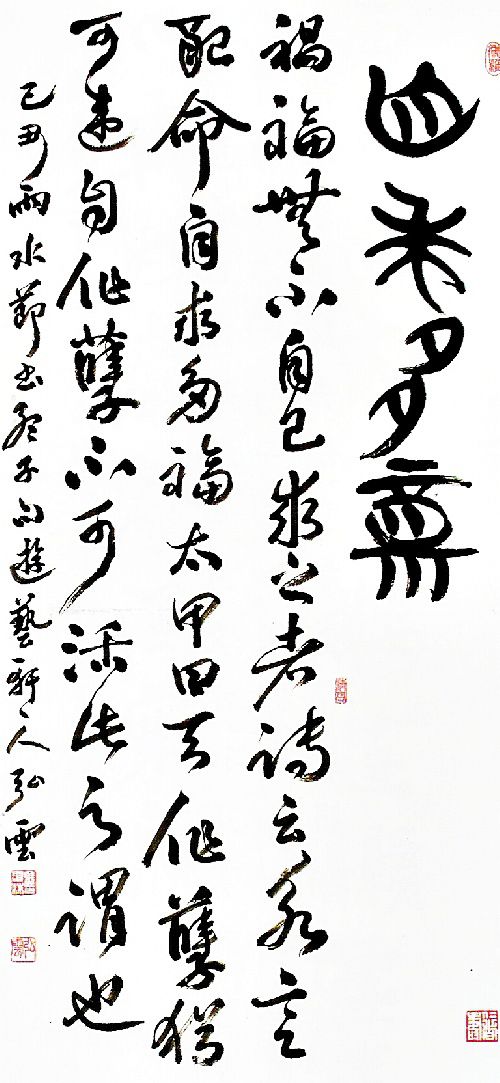 自求多福
禍福無不自己求之者詩云永言
配命自求多福太甲曰天作孽猶
可違自作孽不可活此之謂也
己丑雨水節書孟子句遊藝軒人弘雲